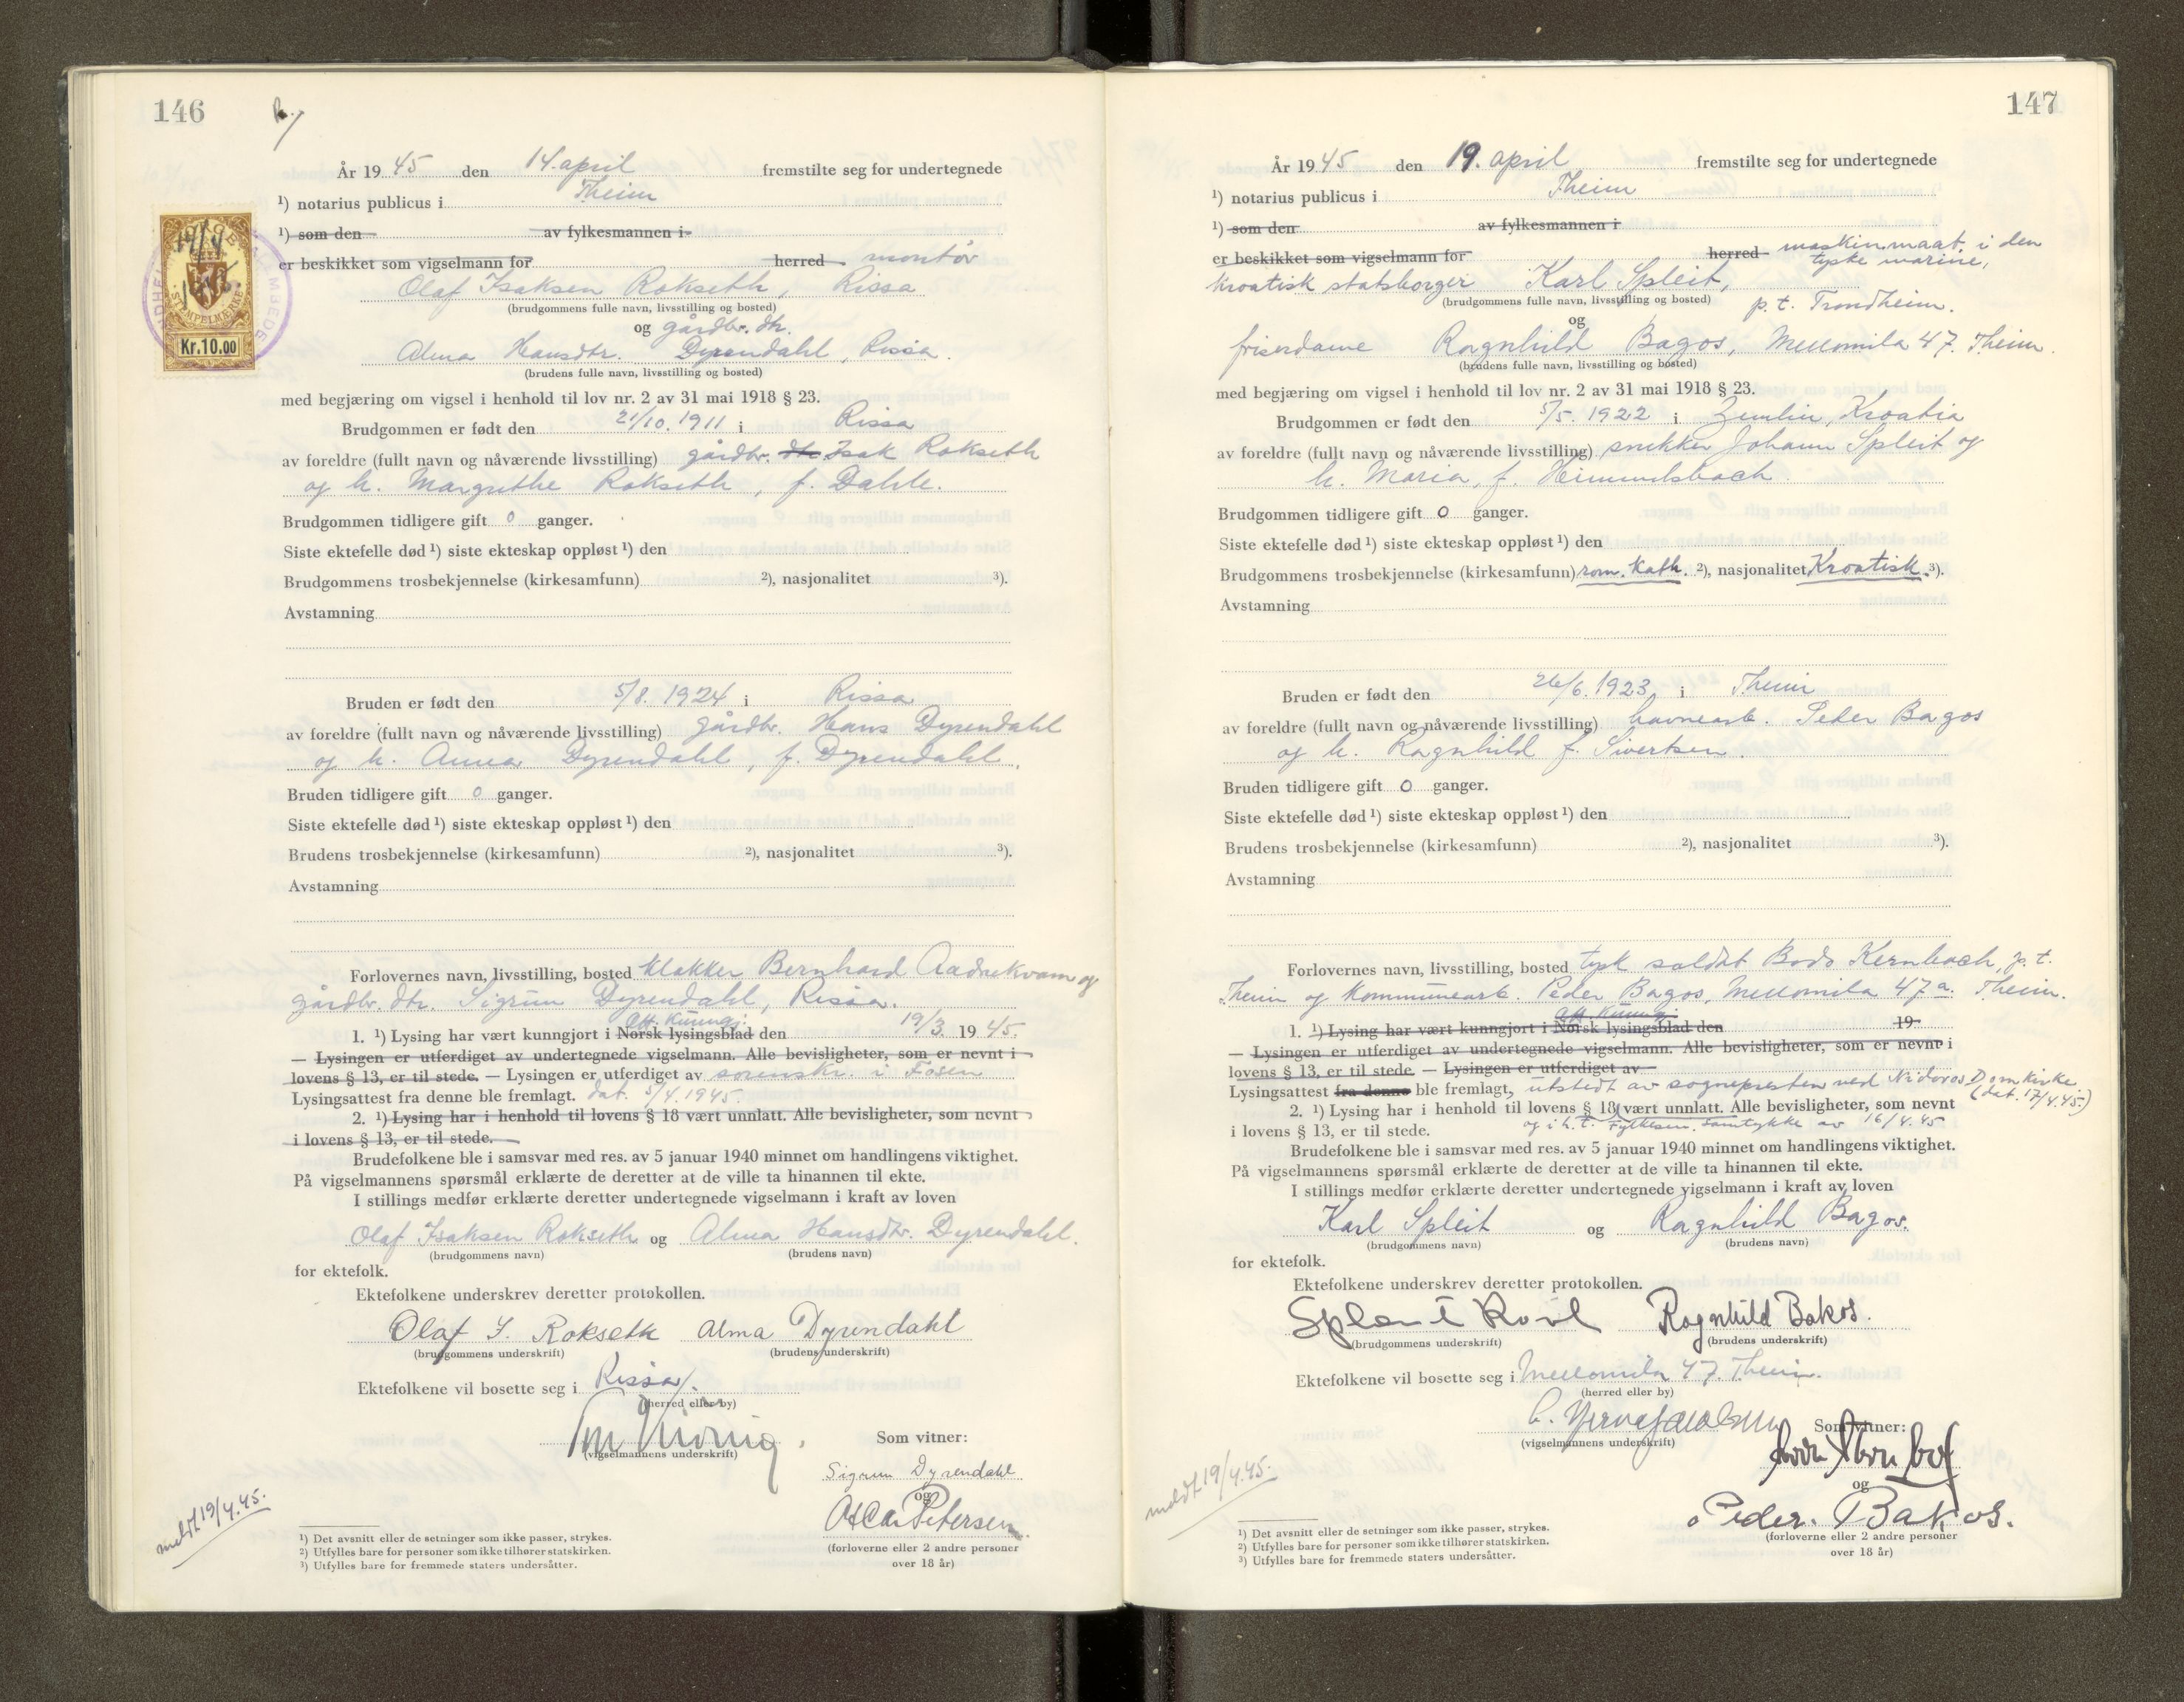 146
År 1945 den 14. april fremstilte seg for undertegnede
¹) notarius publicus i Theim
¹) som den av fylkesmannen i
er beskikket som vigselmann for herred montör
Olaf Isaksen Rokseth, Rissa
(brudgommens fulle navn, livsstilling og bosted)
og gårdbr. dtr.
Alma Hansdtr. Dyrendahl, Rissa.
(brudens fulle navn, livsstilling og bosted)
Kr.10.00
med begjæring om vigsel i henhold til lov nr. 2 av 31 mai 1918 § 23.
Brudgommen er født den 21/10. 1911 i Rissa
av foreldre (fullt navn og nåværende livsstilling) gårdbr. dtr. Isak Rokseth
og h. Margrethe Rokseth, f. Dahle.
Brudgommen tidligere gift 0 ganger.
Siste ektefelle død ¹) siste ekteskap oppløst ¹) den
Brudgommens trosbekjennelse (kirkesamfunn) ²), nasjonalitet ³).
Avstamning
Bruden er født den 5/8. 1924 i Rissa
av foreldre (fullt navn og nåværende livsstilling) gårdbr. Hans Dyrendahl
og h. Anna Dyrendahl, f. Dyrendahl.
Bruden tidligere gift 0 ganger.
Siste ektefelle død ¹) siste ekteskap oppløst ¹) den
Brudens trosbekjennelse (kirkesamfunn) ²), nasjonalitet ³).
Avstamning
Forlovernes navn, livsstilling, bosted klokker Bernhard Aadnekvam og
gårdbr. dtr. Sigrun Dyrendahl, Rissa.
Off. kunngj.
1. ¹) Lysing har vært kunngjort i Norsk lysingsblad den 19/3. 1945.
— Lysingen er utferdiget av undertegnede vigselmann. Alle bevisligheter, som er nevnt i
lovens § 13, er til stede. — Lysingen er utferdiget av sorenskr. i Fosen
Lysingsattest fra denne ble fremlagt. dat. 5/4.1945.
2. ¹) Lysing har i henhold til lovens § 18 vært unnlatt. Alle bevisligheter, som nevnt
i lovens § 13, er til stede.
Brudefolkene ble i samsvar med res. av 5 januar 1940 minnet om handlingens viktighet.
På vigselmannens spørsmål erklærte de deretter at de ville ta hinannen til ekte.
I stillings medfør erklærte deretter undertegnede vigselmann i kraft av loven
Olaf Isaksen Rokseth og Alma Hansdtr. Dyrendahl.
(brudgommens navn) (brudens navn)
for ektefolk.
Ektefolkene underskrev deretter protokollen.
Olaf I. Rokseth Alma Dyrendahl
(brudgommens underskrift) (brudens underskrift)
Ektefolkene vil bosette seg i Rissa.
(herred eller by)
(vigselmannens underskrift)
Som vitner:
Sigrun Dyrendahl
og
Petersen.
(forloverne eller 2 andre personer
over 18 år)
meldt 19/4.45.
¹) Det avsnitt eller de setninger som ikke passer, strykes.
²) Utfylles bare for personer som ikke tilhører statskirken.
³) Utfylles bare for fremmede staters undersåtter.
147
År 1945 den 19. april fremstilte seg for undertegnede
¹) notarius publicus i Theim
¹) som den av fylkesmannen i
er beskikket som vigselmann for herred maskinmaat i den
tyske marine,
kroatisk statsborger Karl Spleit,
(brudgommens fulle navn, livsstilling og bosted) p.t. Trondheim.
og
friserdame Ragnhild Bagos, Mellomila 47. Theim.
(brudens fulle navn, livsstilling og bosted)
med begjæring om vigsel i henhold til lov nr. 2 av 31 mai 1918 § 23.
Brudgommen er født den 5/5. 1922 i Zemlin, Kroatia
av foreldre (fullt navn og nåværende livsstilling) snekker Johann Spleit og
h. Maria, f. Himmelsbach.
Brudgommen tidligere gift 0 ganger.
Siste ektefelle død ¹) siste ekteskap oppløst ¹) den
Brudgommens trosbekjennelse (kirkesamfunn) rom. kath. ²), nasjonalitet Kroatisk. ³).
Avstamning
Bruden er født den 26/6. 1923 i Theim
av foreldre (fullt navn og nåværende livsstilling) havnearb. Peder Bagos
og h. Ragnhild f. Sivertsen.
Bruden tidligere gift 0 ganger.
Siste ektefelle død ¹) siste ekteskap oppløst ¹) den
Brudens trosbekjennelse (kirkesamfunn) ²), nasjonalitet ³).
Avstamning
Forlovernes navn, livsstilling, bosted tysk soldat Bodo Kernbach, p.t.
Theim og kommunearb. Peder Bagos, Mellomila 47a. Theim.
Off. kunngj.
1. ¹) Lysing har vært kunngjort i Norsk lysingsblad den 19
— Lysingen er utferdiget av undertegnede vigselmann. Alle bevisligheter, som er nevnt i
lovens § 13, er til stede. — Lysingen er utferdiget av
Lysingsattest fra denne ble fremlagt, utstedt av sognepresten ved Nidaros Domkirke
(dat. 17/4.45.)
2. ¹) Lysing har i henhold til lovens § 18 vært unnlatt. Alle bevisligheter, som nevnt
i lovens § 13, er til stede. og i h.t. Fylkesm. samtykke av 16/4.45
Brudefolkene ble i samsvar med res. av 5 januar 1940 minnet om handlingens viktighet.
På vigselmannens spørsmål erklærte de deretter at de ville ta hinannen til ekte.
I stillings medfør erklærte deretter undertegnede vigselmann i kraft av loven
Karl Spleit og Ragnhild Bagos.
(brudgommens navn) (brudens navn)
for ektefolk.
Ektefolkene underskrev deretter protokollen.
Ragnhild Bakos.
(brudgommens underskrift) (brudens underskrift)
Ektefolkene vil bosette seg i Mellomila 47. Theim.
(herred eller by)
(vigselmannens underskrift)
Som vitner:
og
Peder. Bakos.
(forloverne eller 2 andre personer
over 18 år)
meldt 19/4.45.
¹) Det avsnitt eller de setninger som ikke passer, strykes.
²) Utfylles bare for personer som ikke tilhører statskirken.
³) Utfylles bare for fremmede staters undersåtter.